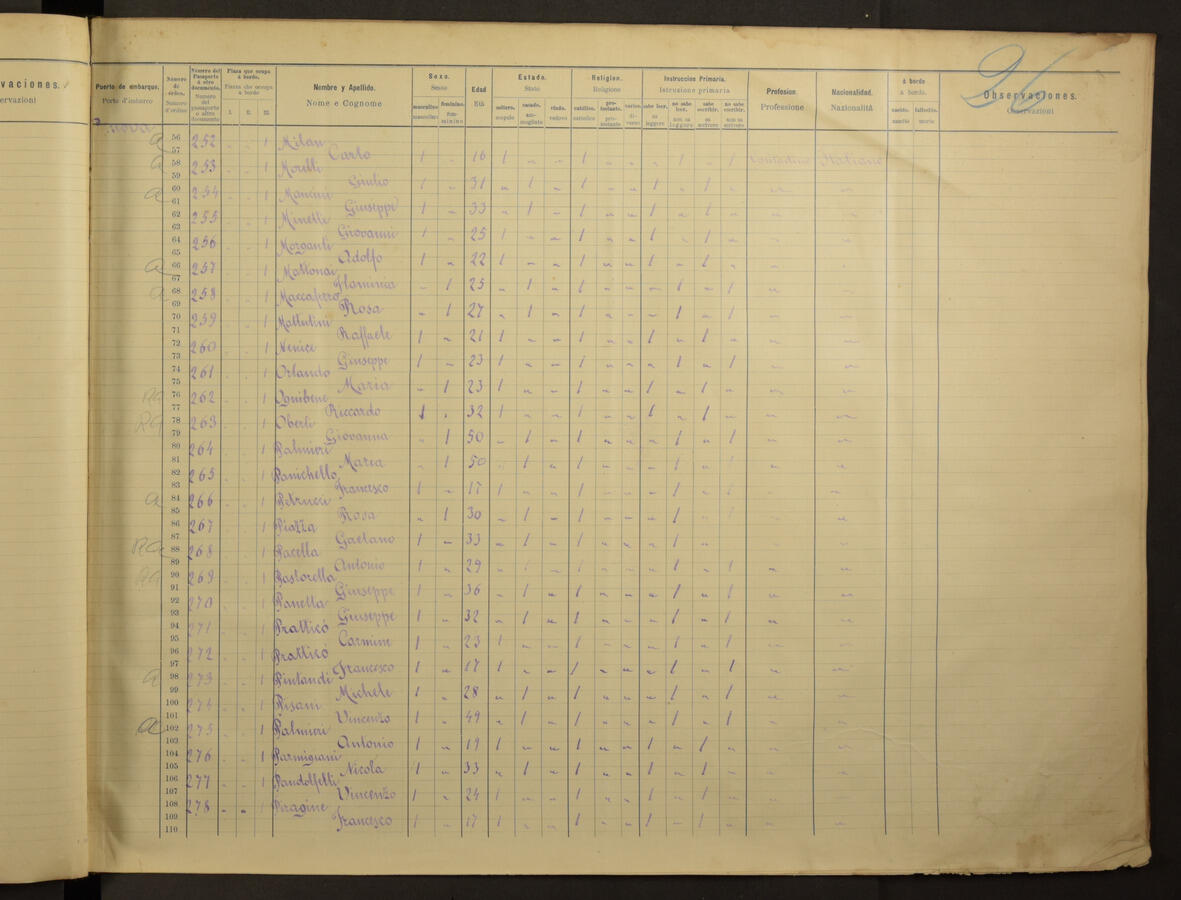 vaciones.
ervazioni
26
Puerto de embarque.
Porto d'imbarco
Número de órden.
Numero d'ordine
Número del Pasaporte ó otro documento.
Numero del passaporto o altro documento
Plaza que ocupa á bordo.
Piazza che occupa a bordo
1. 2. 3.
Nombre y Apellido.
Nome e Cognome
Sexo.
Sesso
masculino femenino.
maschile femminino
Edad
Età
Estado.
Stato
soltero. casado. viudo.
scapolo ammogliato vedovo
Religion.
Religione
católica. protestante. varios.
cattolica protestante diverse
Instruccion Primaria.
Istruzione primaria
sabe leer. no sabe leer. sabe escribir. no sabe escribir.
sa leggere non sa leggere sa scrivere non sa scrivere
Profesion.
Professione
Nacionalidad.
Nazionalità
á bordo
a bordo
nacido. fallecido.
nascita morte
Observaciones.
Osservazioni
56 252 1 Milan
57 Carlo 1 16 1 1 1 1 Contadino Italiano
58 253 1 Morelli
59 Giulio 1 31 1 1 1 1
60 254 1 Mancini
61 Giuseppe 1 33 1 1 1 1
62 255 1 Minelli
63 Giovanni 1 25 1 1 1 1
64 256 1 Morganti
65 Adolfo 1 22 1 1 1 1
66 257 1
67 Flaminia 1 25 1 1 1 1
68 258 1
69 Rosa 1 27 1 1 1 1
70 259 1 Mattutini
71 Raffaele 1 21 1 1 1 1
72 260 1 Nenice
73 Giuseppe 1 23 1 1 1 1
74 261 1 Orlando
75 Maria 1 23 1 1 1 1
76 262 1
77 Riccardo 1 32 1 1 1 1
78 263 1 Oberti
79 Giovanna 1 50 1 1 1 1
80 264 1 Palmieri
81 Maria 1 50 1 1 1 1
82 265 1 Panichello
83 Francesco 1 17 1 1 1 1
84 266 1 Petrucci
85 Rosa 1 30 1 1 1
86 267 1 Piazza
87 Gaetano 1 33 1 1 1
88 268 1 Pacella
89 Antonio 1 29 1 1 1 1
90 269 1 Pastorella
91 Giuseppe 1 36 1 1 1 1
92 270 1 Panetta
93 Giuseppe 1 32 1 1 1 1
94 271 1 Pratticó
95 Carmine 1 23 1 1 1 1
96 272 1 Pratticó
97 Francesco 1 17 1 1 1 1
98 273 1 Pinlandi
99 Michele 1 28 1 1 1 1
100 274 1 Pisani
101 Vincenzo 1 49 1 1 1 1
102 275 1 Palmieri
103 Antonio 1 19 1 1 1 1
104 276 1 Parmigiani
105 Nicola 1 33 1 1 1 1
106 277 1 Pandolfelli
107 Vincenzo 1 24 1 1 1 1
108 278 1 Piragine
109 Francesco 1 17 1 1 1 1
110